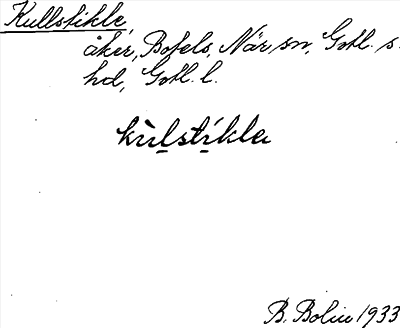 Kullstikle,
åker, Bofels, När sn, Gotl. s.
hd, Gotl. l.
kùlstíkla
B. Bolin 1933